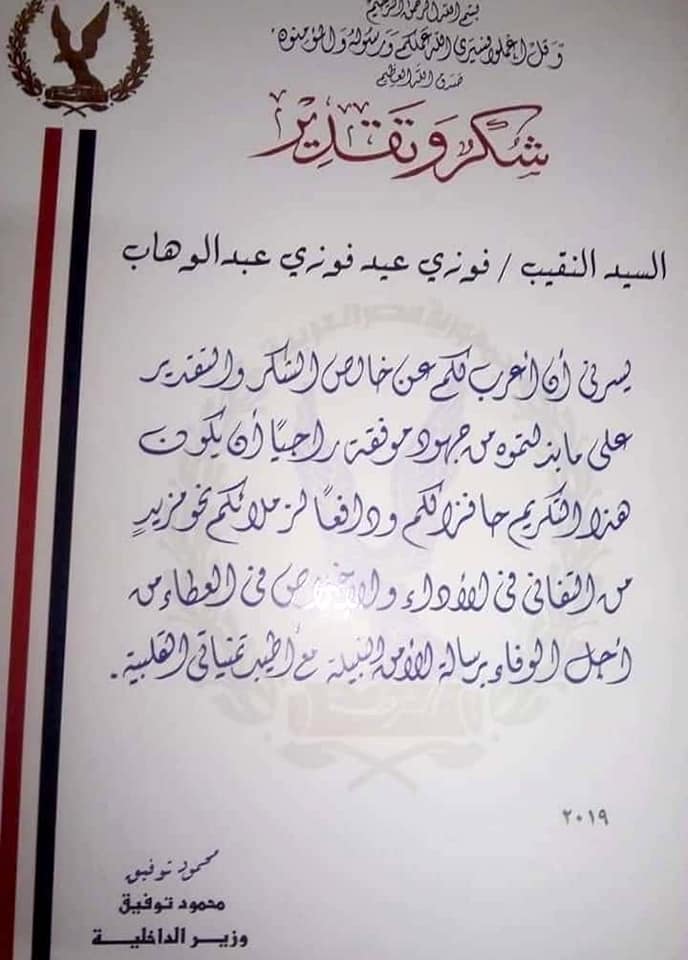 بسم الله الرحمن الرحيم
وقل اعملوا فسيرى الله عملكم ورسوله والمؤمنون
صدق الله العظيم
شكر وتقدير
السيد النقيب / فوزي عيد فوزي عبدالوهاب
يسرني أن أعرب لكم عن خالص الشكر والتقدير
على ما بذلتموه من جهود موفقة راجيًا أن يكون
هذا التكريم حافزا لكم ودافعًا لزملائكم نحو مزيدٍ
من التفاني في الأداء والإخلاص في العطاء من
أجل الوفاء برسالة الأمن النبيلة مع أطيب تمنياتي القلبية .
٢٠١٩
محمود توفيق
محمود توفيق
وزير الداخلية